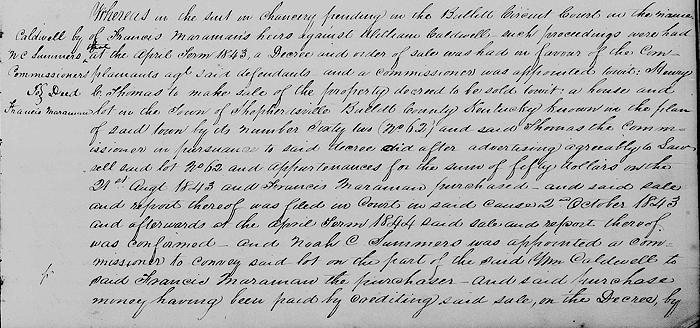 Whereas in the suit in chancery pending in the Bullitt Circuit Court in the name
Caldwell by
of Francis Maramans heirs against William Caldwell - such proceedings were had
N C Summers
at the April Term 1843, a Decree and order of sale was had in favour of the Com-
Commissioners
plainants agt said defendants and a commissioner was appointed towit: Henry
To } Deed
C. Thomas to make sale of the property decreed to be sold towit: a house and
Francis Maraman
lot in the Town of Shepherdsville Bullitt County Kentucky known in the plan
of said town by its number Sixty two (No 62) and said Thomas the Comm-
issioner in pursuance to said decree did after advertising agreeably to Law
sell said lot No 62 and appurtenances for the sum of fifty dollars on the
21st Augt 1843 and Francis Maraman purchased - and said sale
and report thereof was filed in Court in said cause 2nd October 1843
and afterwards at the April Term 1844 said sale and report thereof
was confirmed - and Noah C Summers was appointed a com-
missioner to convey said lot on the part of the said Wm Caldwell to
said Francis Maraman the purchaser - And said purchase
money having been paid by crediting said sale, on the Decree, by